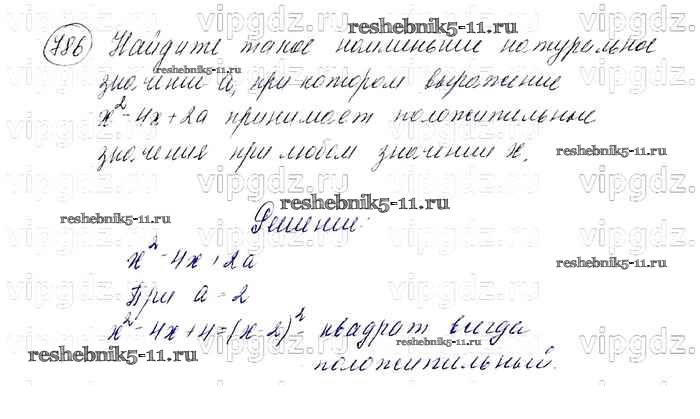 reshebnik5-11.ru
786 Найдите такое наименьшее натуральное
значение a, при котором выражение
x² - 4x + 2a принимает положительные
значения при любом значении x.
reshebnik5-11.ru
reshebnik5-11.ru
reshebnik5-11.ru
reshebnik5-11.ru
Решение:
x² - 4x + 2a
reshebnik5-11.ru
При a = 2
x² - 4x + 4 = (x - 2)² - квадрат всегда
reshebnik5-11.ru
reshebnik5-11.ru
положительный.
vipgdz.ru